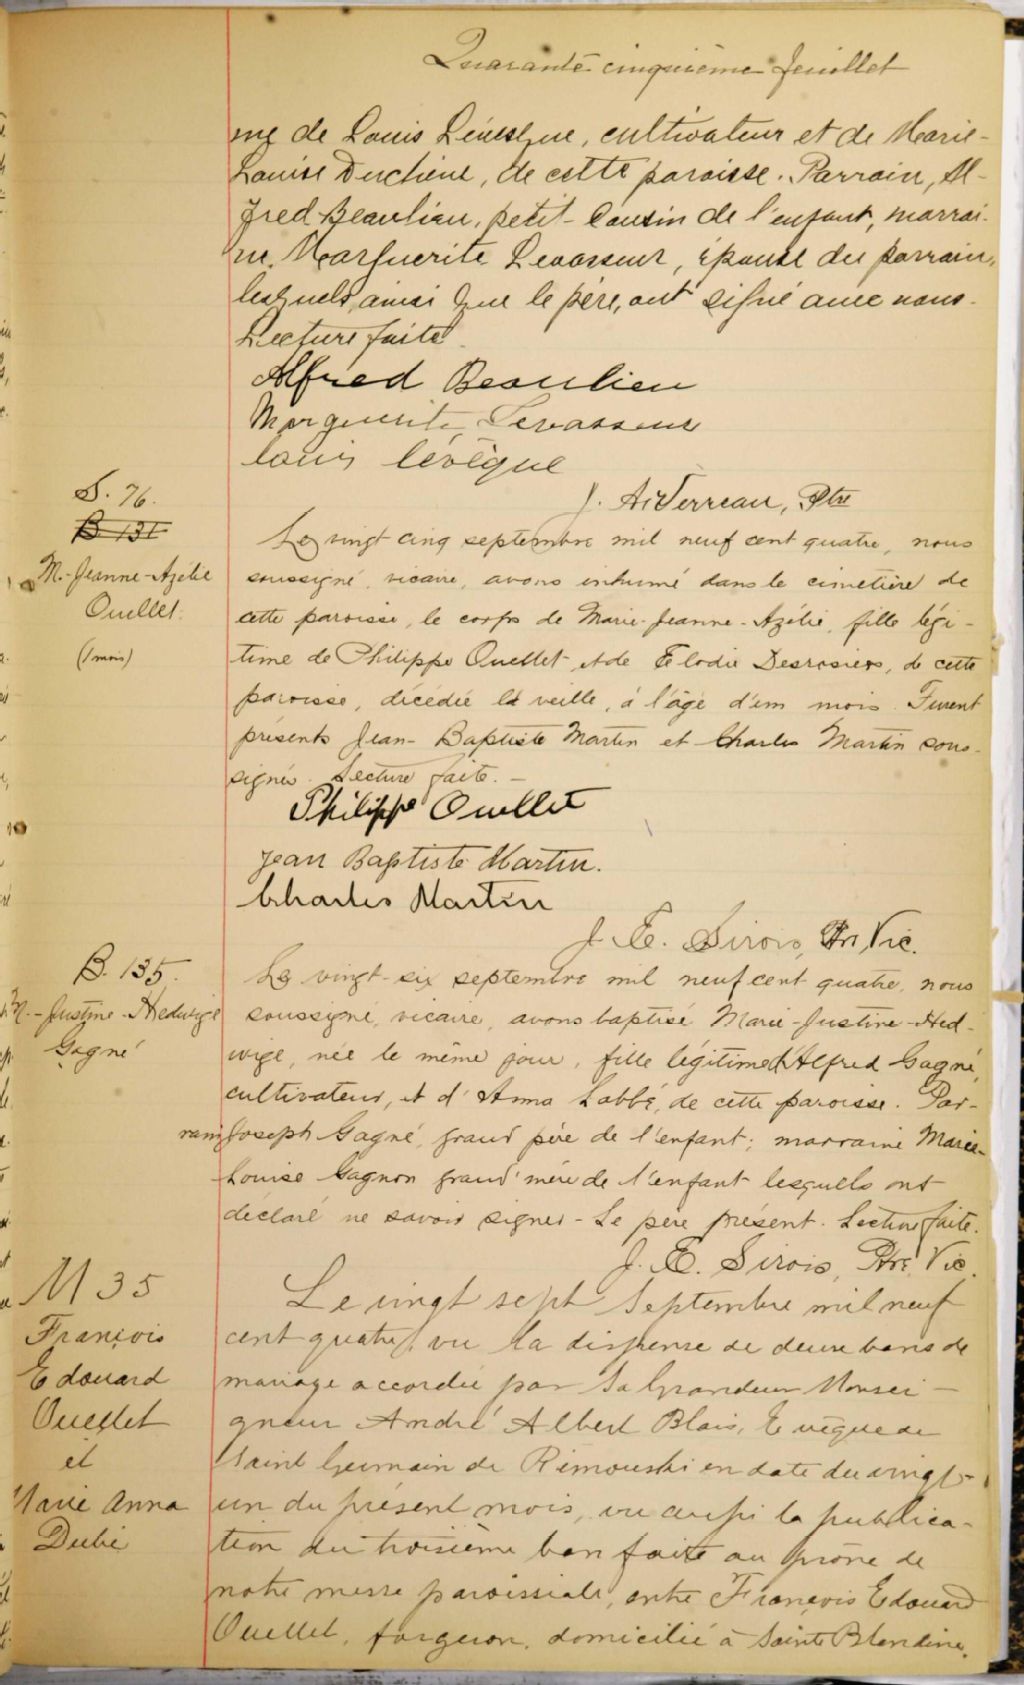 Quarante cinquième feuillet
me de Louis Lévesque, cultivateur et de Marie-
Louise Duchène, de cette paroisse. Parrain, Al-
fred Beaulieu, petit-Cousin de l'enfant, marrai-
ne, Marguerite Levasseur, épouse du parrain,
lesquels, ainsi que le père, ont signé avec nous.
Lecture faite.
Alfred Beaulieu
Marguerite Levasseur
louis lévêque
J. A. Verreau, Ptre
S. 76.
B 131
M.-Jeanne-Azélie
Ouellet.
(1 mois)
Le vingt cinq septembre mil neuf cent quatre, nous
soussigné, vicaire, avons inhumé dans le cimetière de
cette paroisse, le corps de Marie-Jeanne-Azélie, fille légi-
time de Philippe Ouellet et de Elodie Desrosiers, de cette
paroisse, décédée la veille, à l'âge d'un mois. Furent
présents Jean-Baptiste Martin et Charles Martin sous-
signés. Lecture faite.-
Philippe Ouellet
Jean Baptiste Martin.
Charles Martin
J. E. Sirois, Ptre, Vic.
B. 135.
M.-Justine-Hedwige
Gagné
Le vingt-six septembre mil neuf cent quatre, nous
soussigné, vicaire, avons baptisé Marie-Justine-Hed-
wige, née le même jour, fille légitime d'Alfred Gagné,
cultivateur, et d'Anna Labbé, de cette paroisse. Par-
rain Joseph Gagné, grand père de l'enfant; marraine Marie-
Louise Gagnon grand'mère de l'enfant lesquels ont
déclaré ne savoir signer - Le père présent. Lecture faite.
J. E. Sirois, Ptre, Vic.
M 35
François
Edouard
Ouellet
et
Marie Anna
Dubé
Le vingt sept Septembre mil neuf
cent quatre, vu la dispense de deux bans de
mariage accordée par Sa Grandeur Monsei-
gneur André Albert Blais, Evêque de
Saint Germain de Rimouski en date du vingt-
un du présent mois, vu aussi la publica-
tion du troisième ban faite au prône de
notre messe paroissiale, entre François Edouard
Ouellet, forgeron, domicilié à Sainte Blandine,